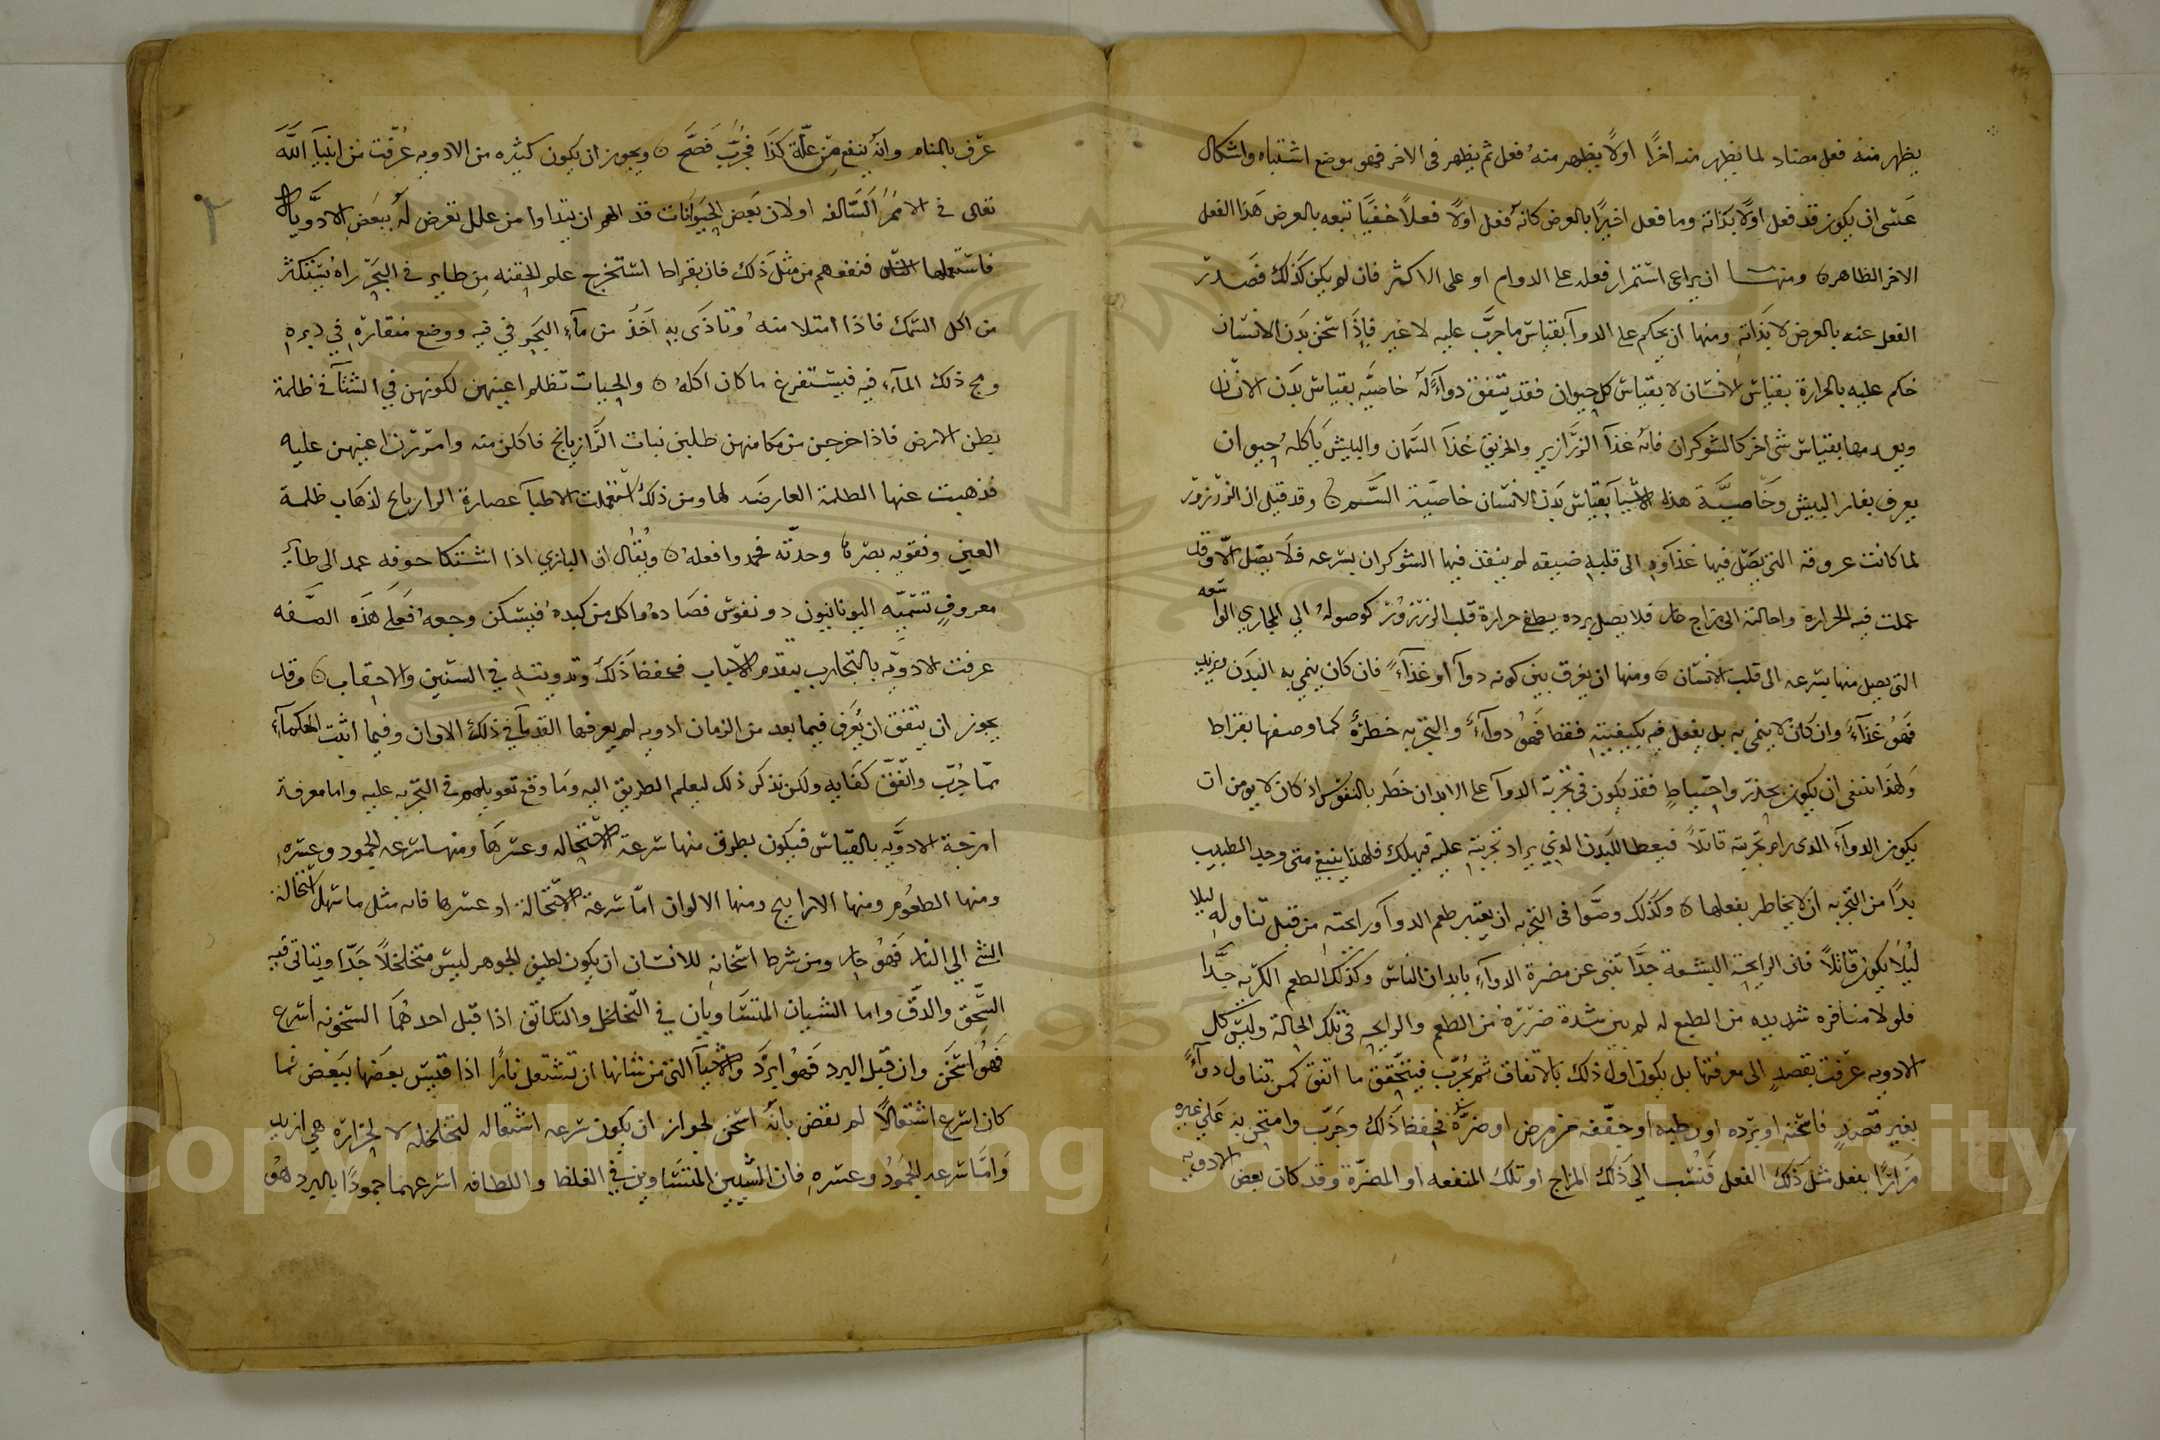 يظهر منه فعل مضاد لما يظهر منه اخرًا اولًا يظهر منه فعل ثم يظهر فى الاخر فهو موضع اشتباه واشكال
عسى ان يكون قد فعل اولًا بذاته وما فعل اخيرًا بالعرض كانه فعل اولًا فعلًا خفيًا تبعه بالعرض هذا الفعل
الاخر الظاهر ومنها ان يراعى استمرار فعله على الدوام او على الاكثر فان لم يكن كذلك فصدر
الفعل عنه بالعرض لا بذاته ومنها ان يحكم على الدوآ بقياس ما جرب عليه لا غير فاذا اسخن بدن الانسان
حكم عليه بالحرارة بقياس الانسان لا بقياس كل حيوان فقد يتفق دوآءً له خاصيه بقياس بدن الانسان
وبعدمها بقياس شى اخر كالشوكران فانه غذآ الزرازير والخربق غذآ السمان والبيش ياكله حيوان
يعرف بفار البيش وخاصيّة هذه الاشيآ بقياس بدن الانسان خاصية السم وقد قيل ان الزرزور
لما كانت عروقه التى يصل فيها غذاوه الى قلبه ضيقه لم ينفذ فيها الشوكران بسرعه فلا يصل الا وقد
عملت فيه الحرارة واحالته الى مزاج حار فلا يصل برده يطفى حرارة قلب الزرزور كوصوله الى المجاري الواسعه
التى يصل منها بسرعه الى قلب الانسان ومنها ان يفرق بين كونه دوآ او غذآءً فان كان ينمي به البدن ويزيد
فهو غذآءً وان كان لا ينمي به بل يفعل فيه بكيفيته فقط فهو دوآءً والتجربه خطرةٌ كما وصفها بقراط
ولهذا ينبغى ان يكون بحذر واحتياط فقد يكون فى تجربة الدوآ على الابدان خطر بالنفوس اذ كان لا يومن ان
يكون الدوآء الذى يرام تجربته قاتلًا فيعطا للبدن الذي يراد تجربته عليه فيهلك فلهذا ينبغي متى وجد الطبيب
بدًا من التجربه ان لا يخاطر بفعلها وكذلك وصوا فى التجربه ان يعتبر طعم الدوآ ورايحته من قبل تناوله ليلا
ليلا يكون قاتلًا فان الرايحة البشعة جدًا تنبى عن مضرة الدوآء بابدان الناس وكذلك الطعم الكريه جدًا
فلولا منافرة شديده من الطبع له لم يبن شدة ضرره من الطعم والرايحه فى تلك الحالة وليس كل
الادويه عرفت بقصدٍ الى معرفتها بل يكون اول ذلك بالاتفاق ثم يُجرب فيتحقق ما اتفق كمن تناول دوآءً
بغير قصدٍ فاسخنه او برده او رطبه او جففه من مرض او ضره فحفظ ذلك وجرب وامتحن به على غيره
مرارًا بفعل مثل ذلك الفعل فنسب الى ذلك المزاج او تلك المنفعه او المضرّة وقد كان بعض الادويه
عرف بالمنام وانه ينفع من علّة كذا فجُرّب فصحّ ويجوز ان يكون كثيره من الادويه عُرّفت من انبيآ الله
تعالى فى الامم السالفه او لان بعض الحيوانات قد الهم ان يتداوا من علل تعرض له ببعض الادويه
فاستعملها الناس فنفعهم من مثل ذلك فان بقراط استخرج علم الحقنه من طاير فى البحر راه يستكثر
من اكل السمك فاذا امتلا منه وتاذى به اخذ من مآء البحر في فيه ووضع منقاره في دبره
ومج ذلك المآء فيه فيستفرغ ما كان اكله والحيات تظلم اعينهن لكونهن في الشتآ فى ظلمة
بطن الارض فاذا خرجن من مكامنهن طلبن نبات الرازيانج فاكلن منه وامررن اعينهن عليه
فذهبت عنها الظلمة العارضه لها ومن ذلك استعملت الاطبآ عصارة الرازيانج لذهاب ظلمة
العين وتقويه بصرها وحدّته فحمدوا فعله ويُقال ان البازي اذا اشتكا جوفه عمد الى طآئر
معروفٍ تسميّه اليونانيون دونفوس فصاده واكل من كبده فيسكن وجعه فعلى هذه الصفه
عرفت الادويّه بالتجارب بتقدم الاسباب فحفظ ذلك وتدوينه في السنين والاحقاب وقد
يجوز ان يتفق ان يُعرف فيما بعد من الزمان ادويه لم يعرفها القدمآ فى ذلك الاوان وفيما اثبت الحكمآء
ممّا جُرّب واتّفق كفايه ولكن نذكر ذلك ليعلم الطريق اليه وما وقع تعويلهم فى التجربه عليه واما معرفة
امزجة الادويّه بالقياس فيكون بطرق منها سرعة الاستحاله وعسرها ومنها سرعه الجمود وعسره
ومنها الطعوم ومنها الارايح ومنها الالوان امّا سرعة الاستحالة او عسرها فانه مثل ما سهل استحالة
الشى الي النار فهو حار ومن شرط اسخانه للانسان ان يكون لطيف الجوهر ليس متخلخلًا جدًا ويتاتى فيه
السحق والدق واما الشيان المتساويان في التخلخل والتكاثف اذا قبل احدهما السخونه اسرع
فهو اسخن وان قبل البرد فهو ابرد والاشيآ التى من شانها ان تشتعل نارًا اذا قيس بعضها ببعض فما
كان اسرع اشتعالًا لم يقض بانه اسخن لجواز ان يكون سرعه اشتعاله لتخلخله لا لحرارة هي ازيد
وامّا سرعه الجمود وعسره فان الشيين المتساويين في الغلظ واللطافه اسرعهما جمودًا بالبرد هو
Copyright © King Saud University